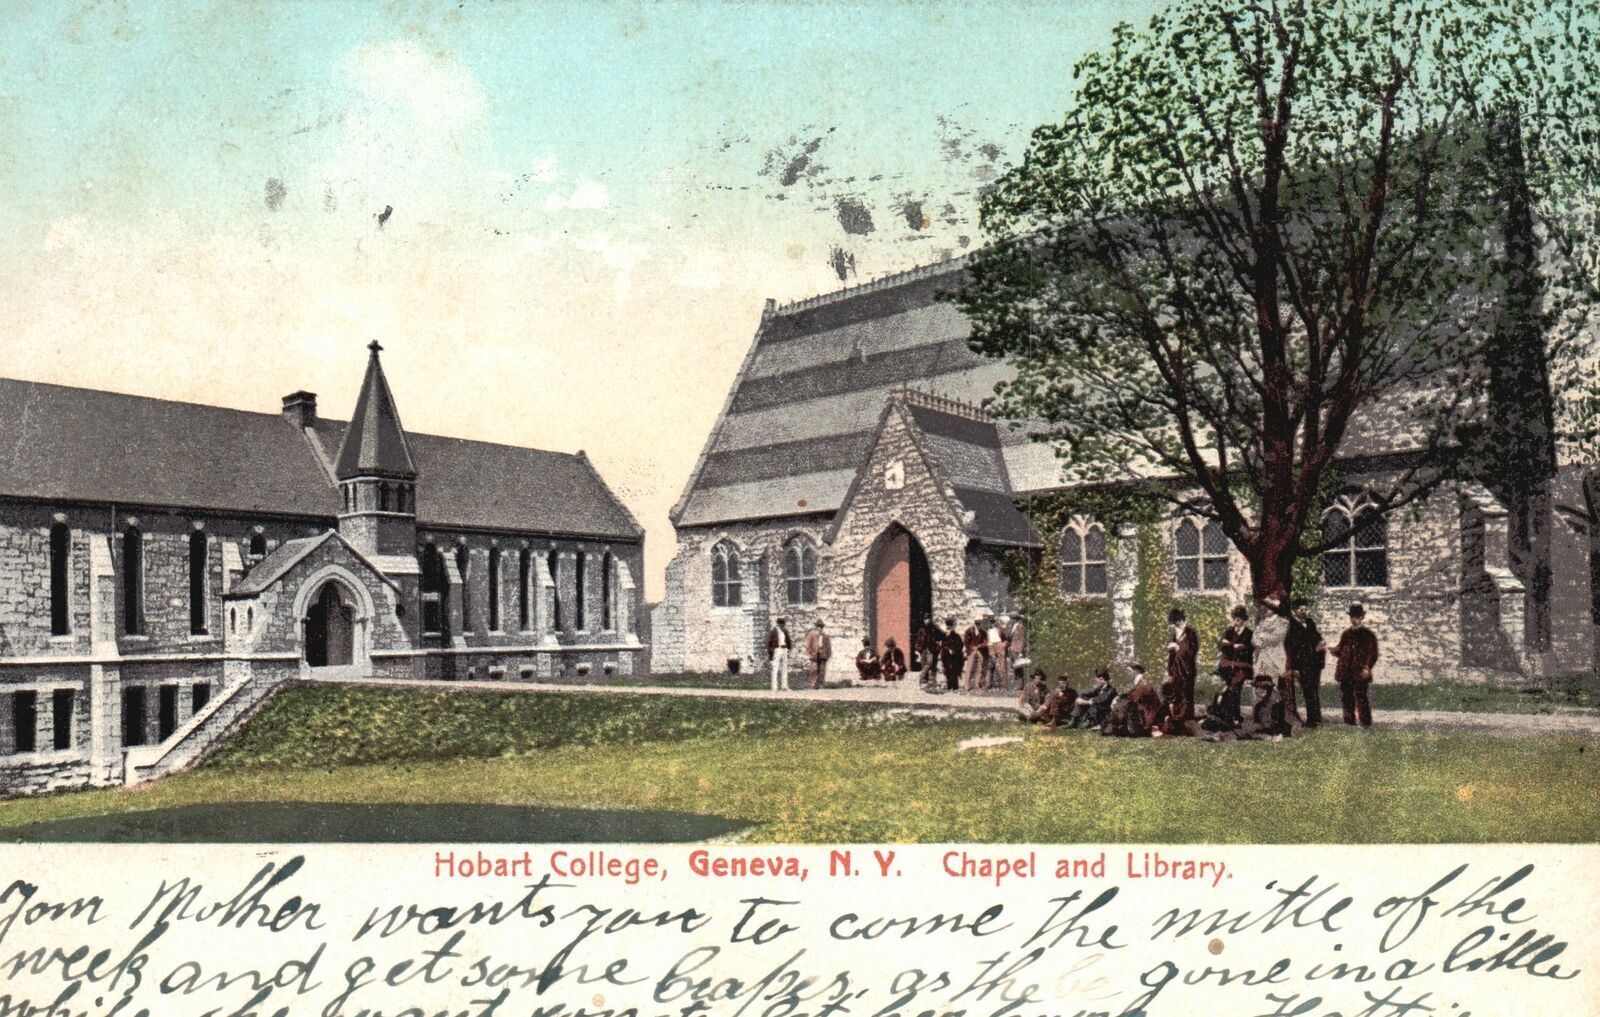 Hobart College, Geneva, N. Y. Chapel and Library.
Your Mother wants you to come the mitle of the
week and get some Grapes, as the be gone in a little
while she want you to let her know Hattie